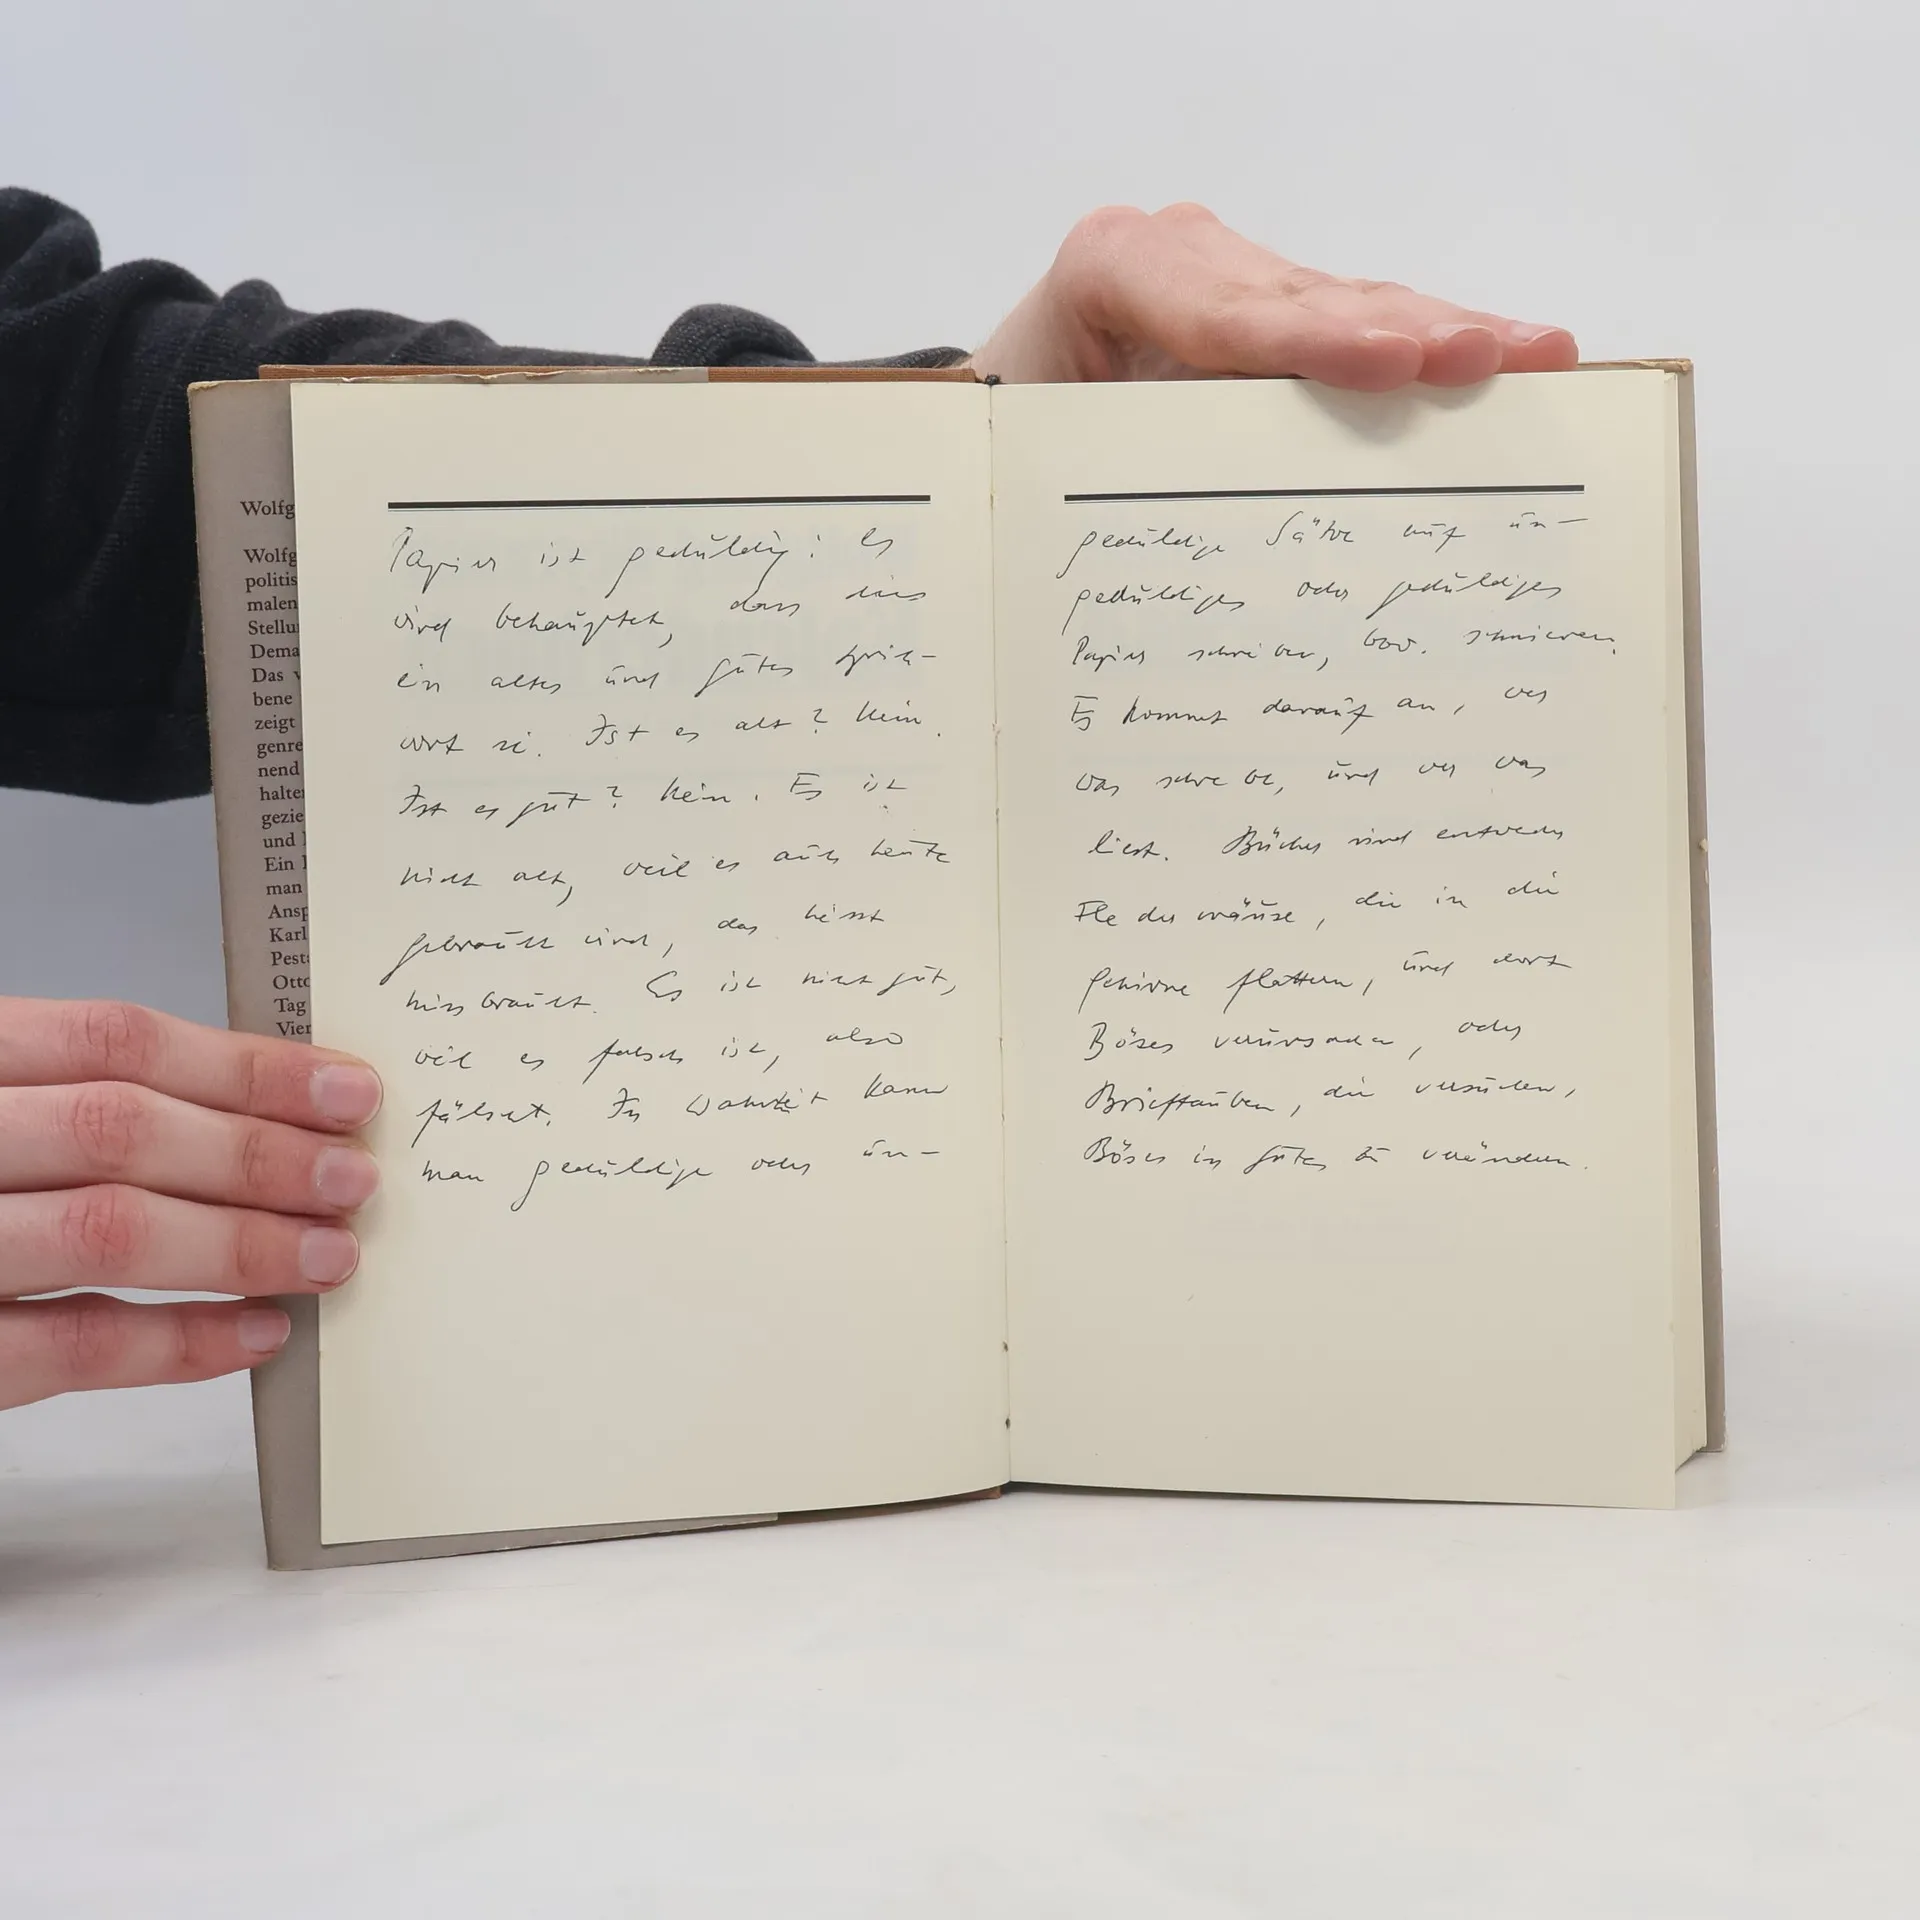 Wolfg
Wolfg
politis
malen
Stellu
Dema
Das v
bene
zeigt
genre
nend
halte
gezie
und
Ein
man
Ansp
Karl
Pest
Otto
Tag
Vier
Papier ist geduldig: Es
wird behauptet, dass dies
ein altes und gutes Sprich-
wort sei. Ist es alt? Nein.
Ist es gut? Nein. Es ist
nicht alt, weil es auch heute
gebraucht wird, das heisst
missbraucht. Es ist nicht gut,
weil es falsch ist, also
fälscht. In Wahrheit kann
man geduldige oder un-
geduldige Sätze auf un-
geduldiges oder geduldiges
Papier schreiben, bzw. schmieren.
Es kommt darauf an, wer
was schreibe, und wer was
liest. Bücher sind entweder
Fledermäuse, die in die
Gehirne flattern, und dort
Böses verursachen, oder
Brieftauben, die versuchen,
Böses in Gutes zu verändern.